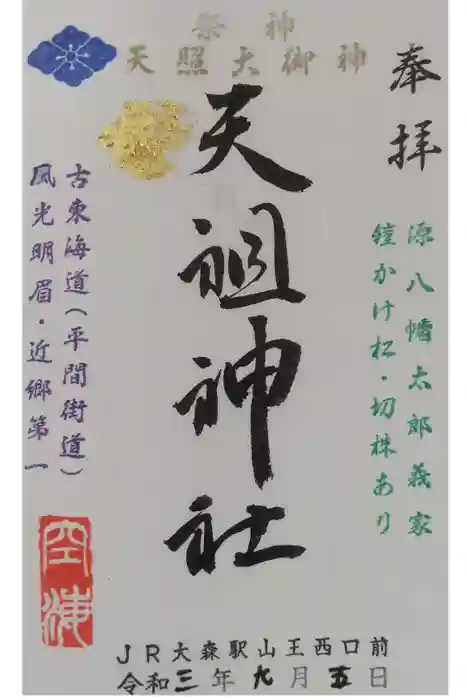 祭神
天照大御神
奉拝
源八幡太郎義家
鐘かけ松・切株あり
天祖神社
古東海道（平間街道）
風光明眉・近郷第一
空海
JR大森駅山王西口前
令和三年九月五日